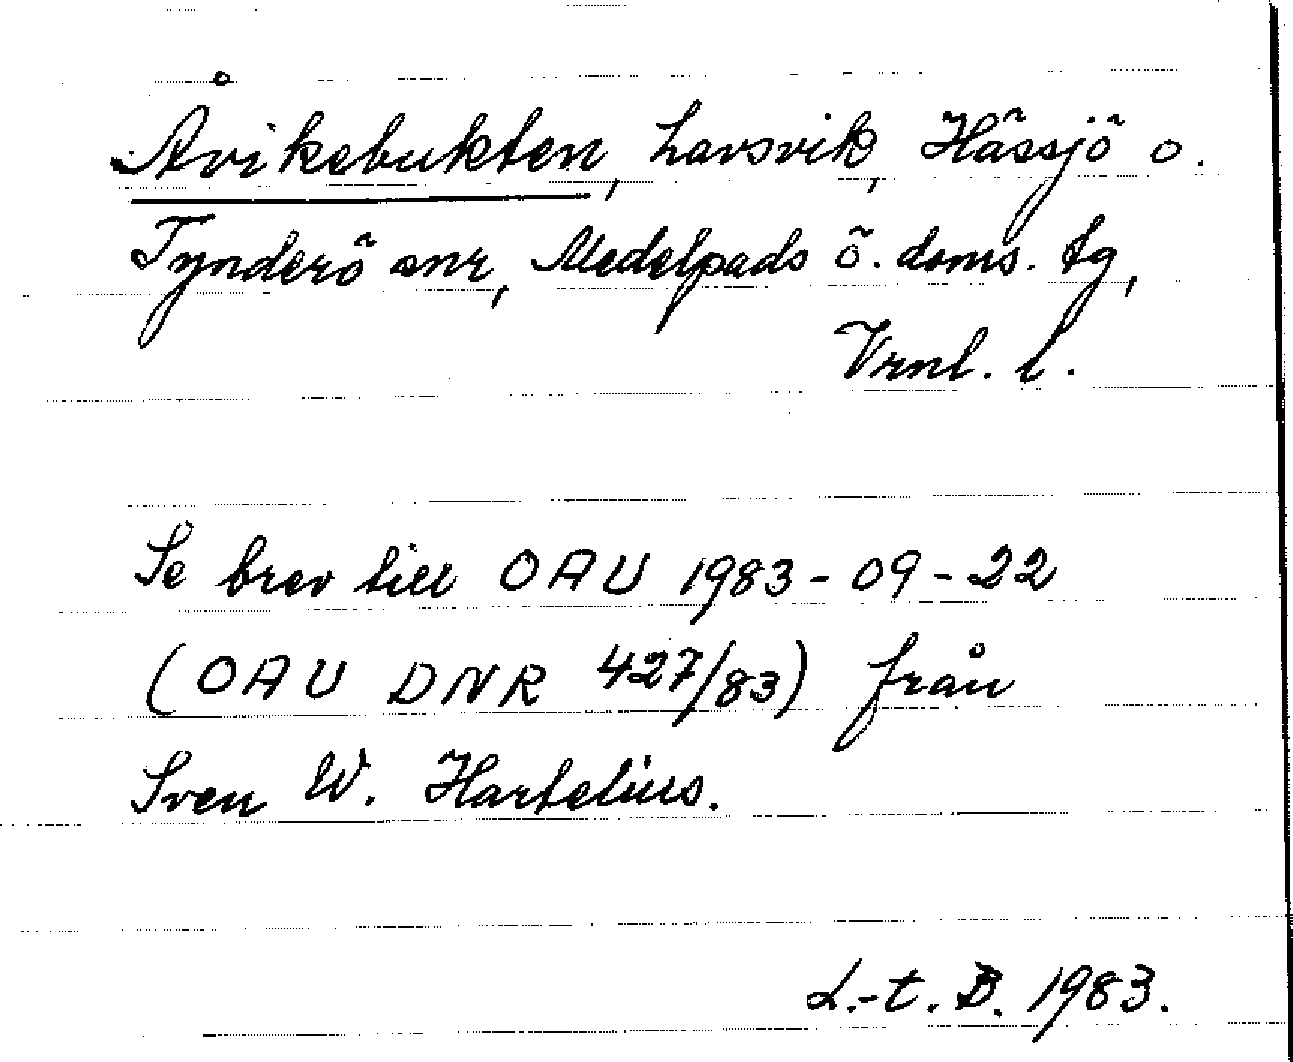 Åvikebukten, havsvik, Hässjö o.
Tynderö snr, Medelpads ö. doms. tg,
Vrnl. l.
Se brev till OAU 1983-09-22
(OAU DNR 427/83) från
Sven W. Hartelius.
L.-t. B. 1983.